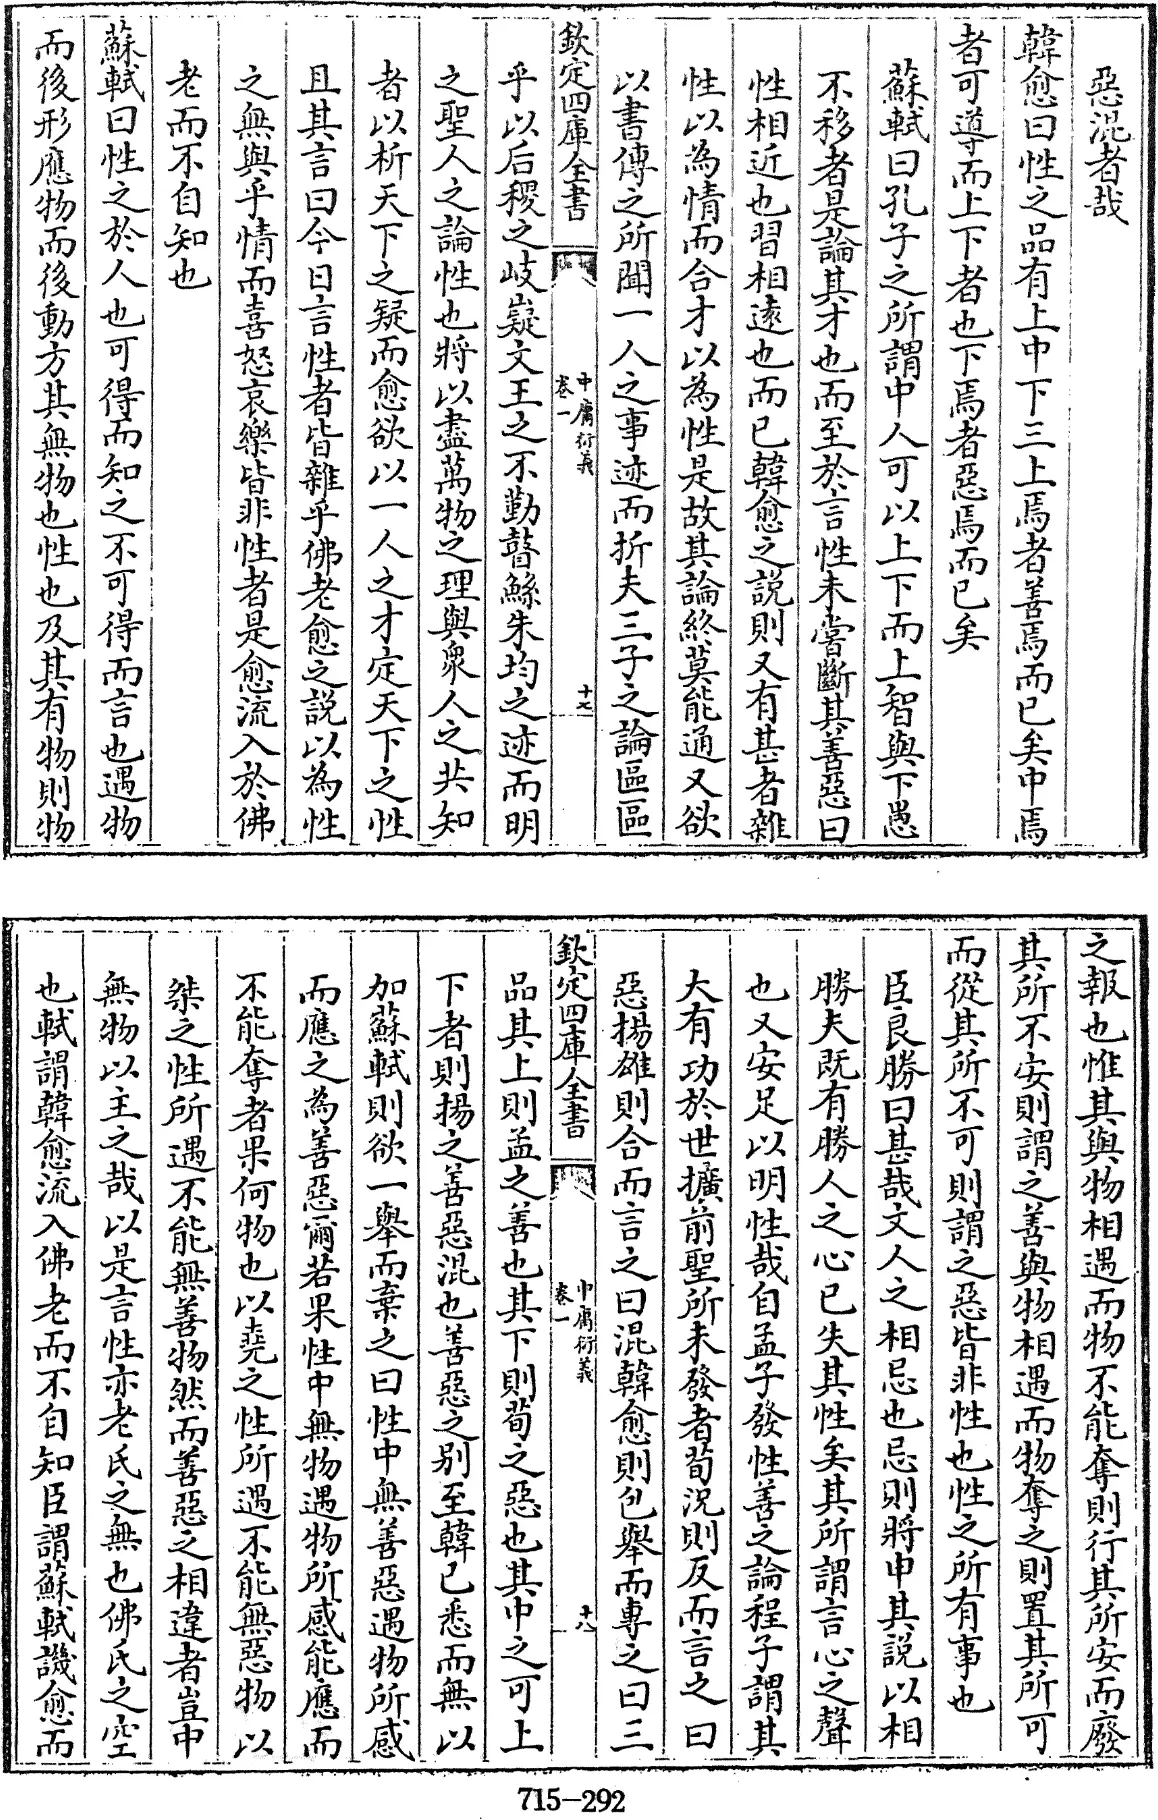 惡混者哉
韓愈曰性之品有上中下三上焉者善焉而已矣中焉
者可導而上下者也下焉者惡焉而已矣
蘇軾曰孔子之所謂中人可以上下而上智與下愚
不移者是論其才也而至於言性未嘗斷其善惡曰
性相近也習相遠也而已韓愈之説則又有甚者雜
性以為情而合才以為性是故其論終莫能通又欲
以書傳之所聞一人之事迹而折夫三子之論區區
欽定四庫全書
中庸衍義
卷一
十七
乎以后稷之岐嶷文王之不勤瞽鯀朱均之迹而明
之聖人之論性也將以盡萬物之理與衆人之共知
者以析天下之疑而愈欲以一人之才定天下之性
且其言曰今日言性者皆雜乎佛老愈之説以為性
之無與乎情而喜怒哀樂皆非性者是愈流入於佛
老而不自知也
蘇軾曰性之於人也可得而知之不可得而言也遇物
而後形應物而後動方其無物也性也及其有物則物
之報也惟其與物相遇而物不能奪則行其所安而廢
其所不安則謂之善與物相遇而物奪之則置其所可
而從其所不可則謂之惡皆非性也性之所有事也
臣良勝曰甚哉文人之相忌也忌則將申其説以相
勝夫既有勝人之心已失其性矣其所謂言心之聲
也又安足以明性哉自孟子發性善之論程子謂其
大有功於世擴前聖所未發者荀況則反而言之曰
惡揚雄則合而言之曰混韓愈則包舉而專之曰三
欽定四庫全書
中庸衍義
卷一
十八
品其上則孟之善也其下則荀之惡也其中之可上
下者則揚之善惡混也善惡之别至韓已悉而無以
加蘇軾則欲一舉而棄之曰性中無善惡遇物所感
而應之為善惡爾若果性中無物遇物所感能應而
不能奪者果何物也以堯之性所遇不能無惡物以
桀之性所遇不能無善物然而善惡之相違者豈中
無物以主之哉以是言性亦老氏之無也佛氏之空
也軾謂韓愈流入佛老而不自知臣謂蘇軾譏愈而
715-292